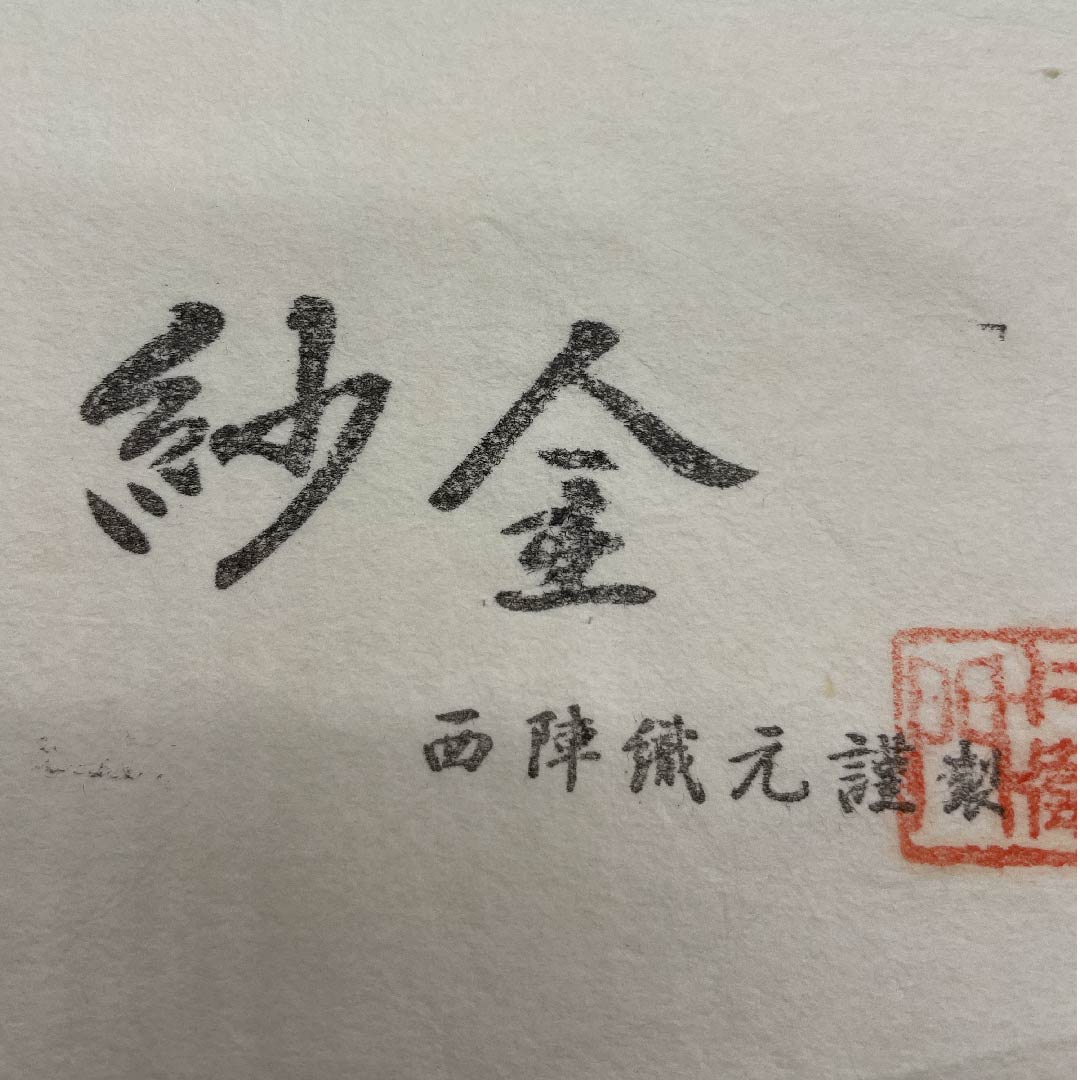 紗金
西陣織元謹製